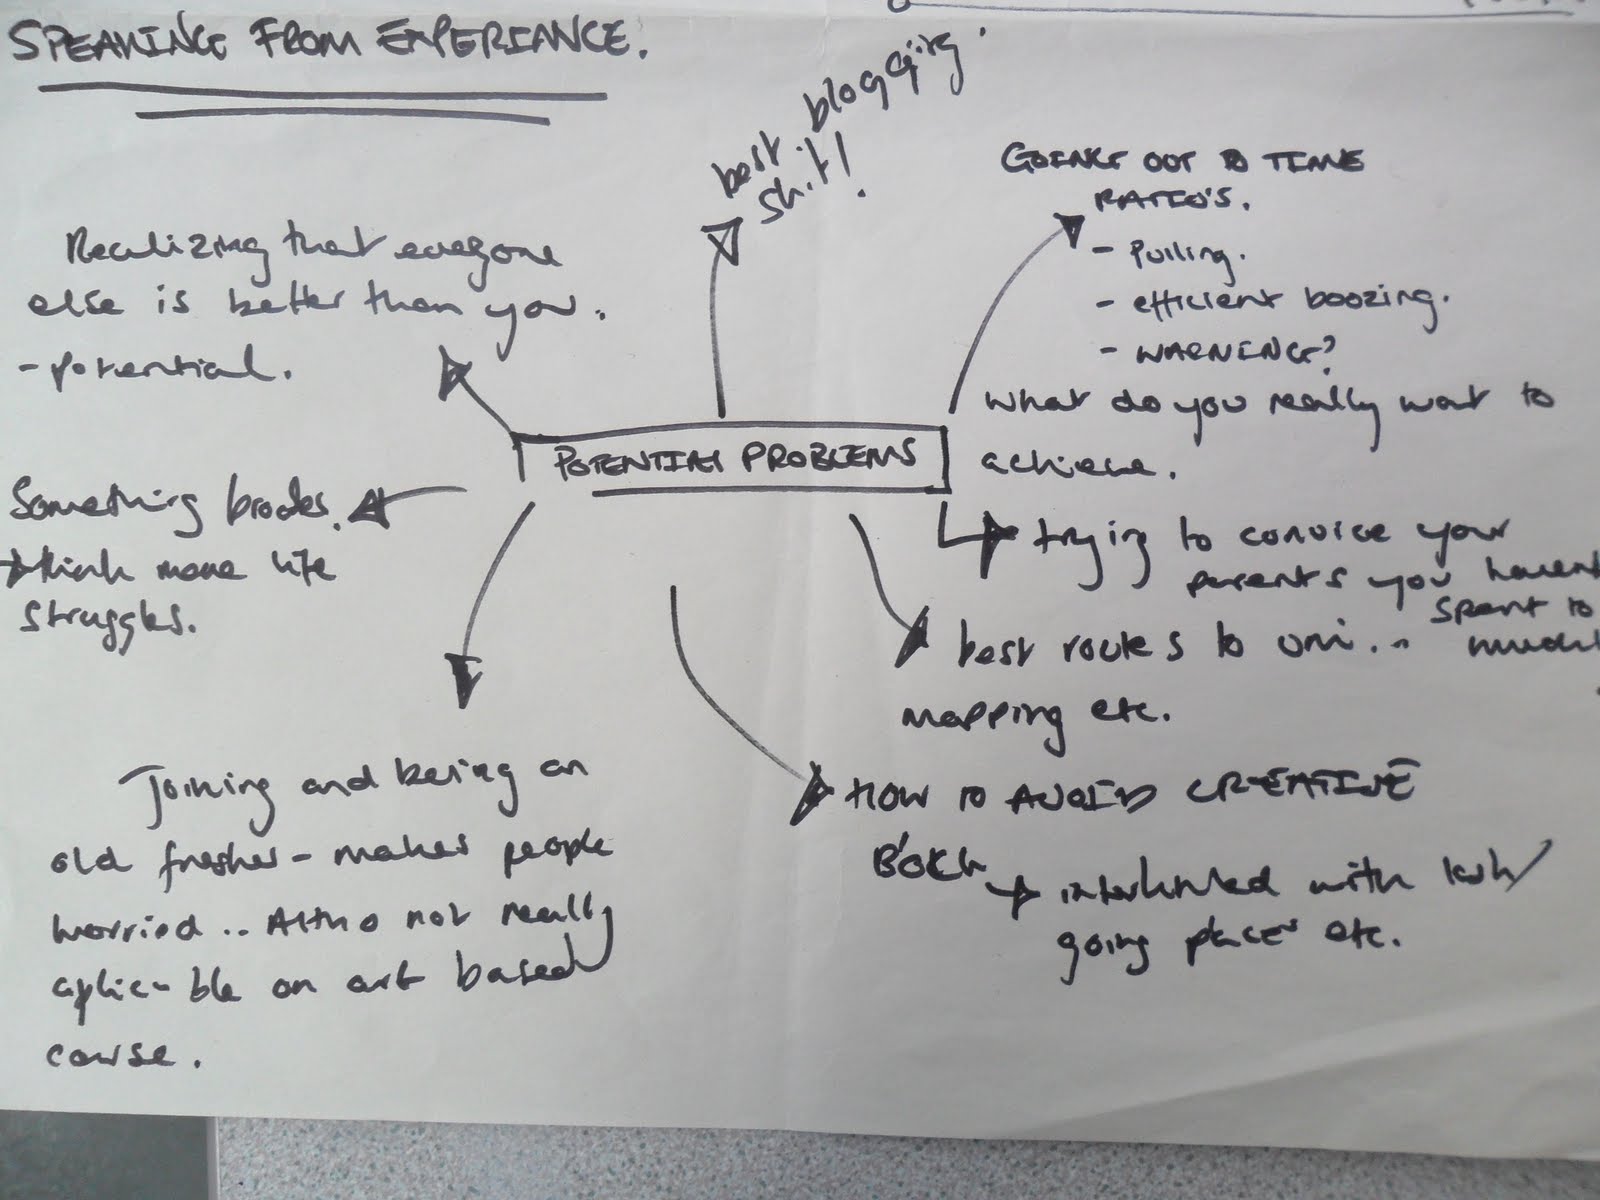 SPEAKING FROM EXPERIANCE.
best blogging.
shit!
GOING OUT TO TIME
RATIO'S.
- Pulling.
- efficient boozing.
- WARNING?
What do you really want to
achieve.
Realizing that everyone
else is better than you.
- potential.
POTENTIAL PROBLEMS
Something
think more life
struggles.
trying to convice your
parents you havent
spent to
much
best routes to uni...
mapping etc.
Joining and being an
old fresher - makes people
worried .. Altho not really
aplicable on art based
course.
HOW TO AVOID CREATIVE
BLOCK
interlinked with
going places etc.